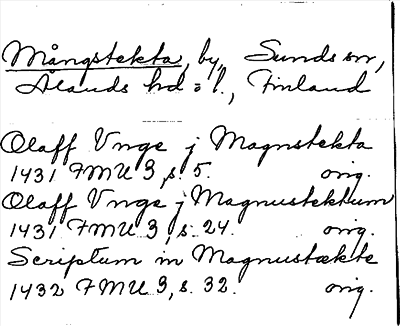 Mångstekta, by, Sunds sn,
Ålands hd o l., Finland
Olaff Vnge j Magnstekta
1431 FMU 3, s 5. orig.
Olaff Vnge j Magnustektum
1431 FMU 3, s. 24. orig.
Scriptum in Magnustækte
1432 FMU 3, s. 32. orig.